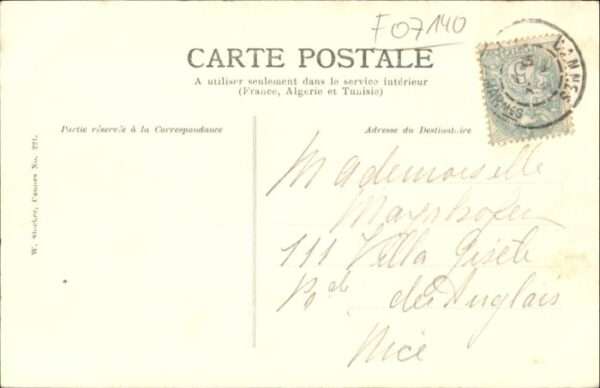 F07140
CARTE POSTALE
A utiliser seulement dans le service intérieur
(France, Algérie et Tunisie)
Partie réservée à la Correspondance
Adresse du Destinataire
CANNES
W. Cannes No. 221.
Mademoiselle
111 Villa Gisèle
des Anglais
Nice